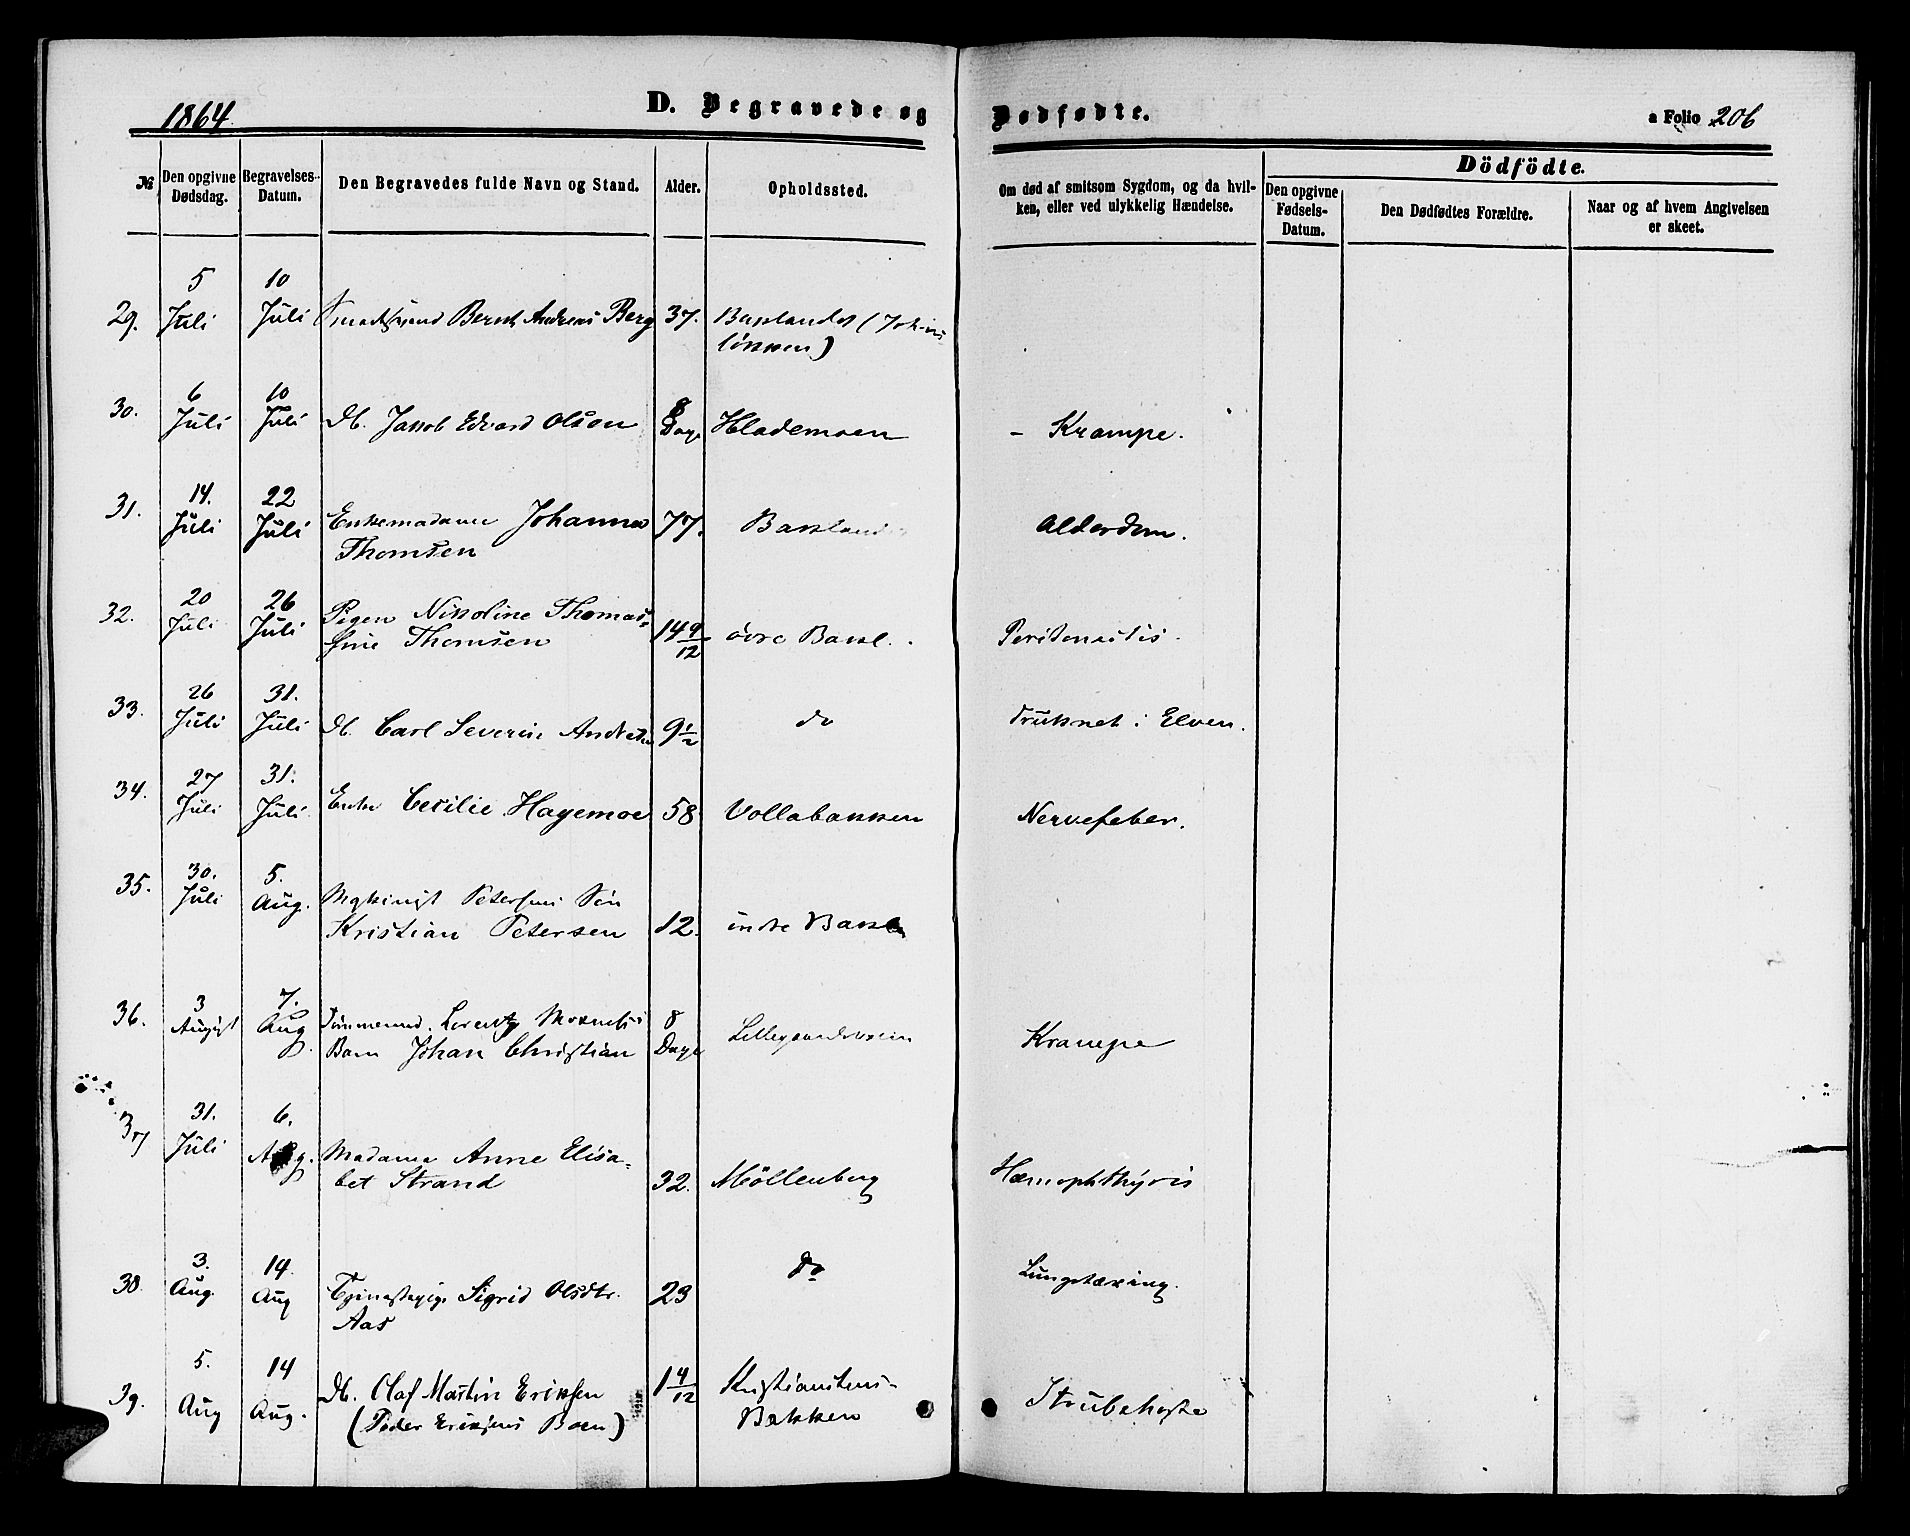 1864. D. Begravede og Dødfødte. a Folio 206
№ Den opgivne Dødsdag. Begravelses-Datum. Den Begravedes fulde Navn og Stand. Alder. Opholdssted. Om død af smitsom Sygdom, og da hvilken, eller ved ulykkelig Hændelse.
Dödfödte.
Den opgivne Fødsels-Datum. Den Dødfødtes Forældre. Naar og af hvem Angivelsen er skeet.
29. 5 Juli 10 Juli Bernt Andreas Berg 37. Baklandet
løkken)
30. 6 Juli 10 Juli Db. Jakob Edvard Olsen 8 Dage Hlademoen - Krampe.
31. 14. Juli 22 Juli Enkemadame Johanna 77. Bakland Alderdom.
Thomsen
32. 20 Juli 26 Juli Pigen Nikoline Thomas-
sine Thomsen 14 9/12 övre Bakl. Peritonitis.
33. 26 Juli 31. Juli Db. Carl Severin 9 1/2 do druknet i Elven.
34. 27 Juli 31. Juli Enke Cecilie Hagemoe 58 Vollabakken Nervefeber.
35. 30. Juli 5. Aug. Petersens Sön
Kristian Petersen 12. indre Bakl
36. 3 August 7. Aug. Lorentz 8
Barn Johan Christian Dage Krampe
37 31. Juli 6. Aug. Madame Anne Elisa-
bet Strand 32. Möllenberg
38. 3. Aug. 14. Aug Sigrid Olsdtr. 23 Do Lungetæring.
Aas
39. 5. Aug 14 Aug. Db. Olaf Martin Eriksen 1 4/12 Kristianstens-
(Peder Eriksens Barn) Bakken Strubehoste